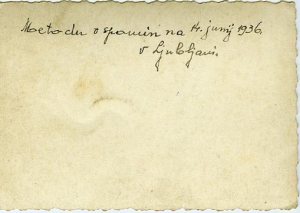 Metodu v spomin na 14. junij 1936.
v Ljubljani.